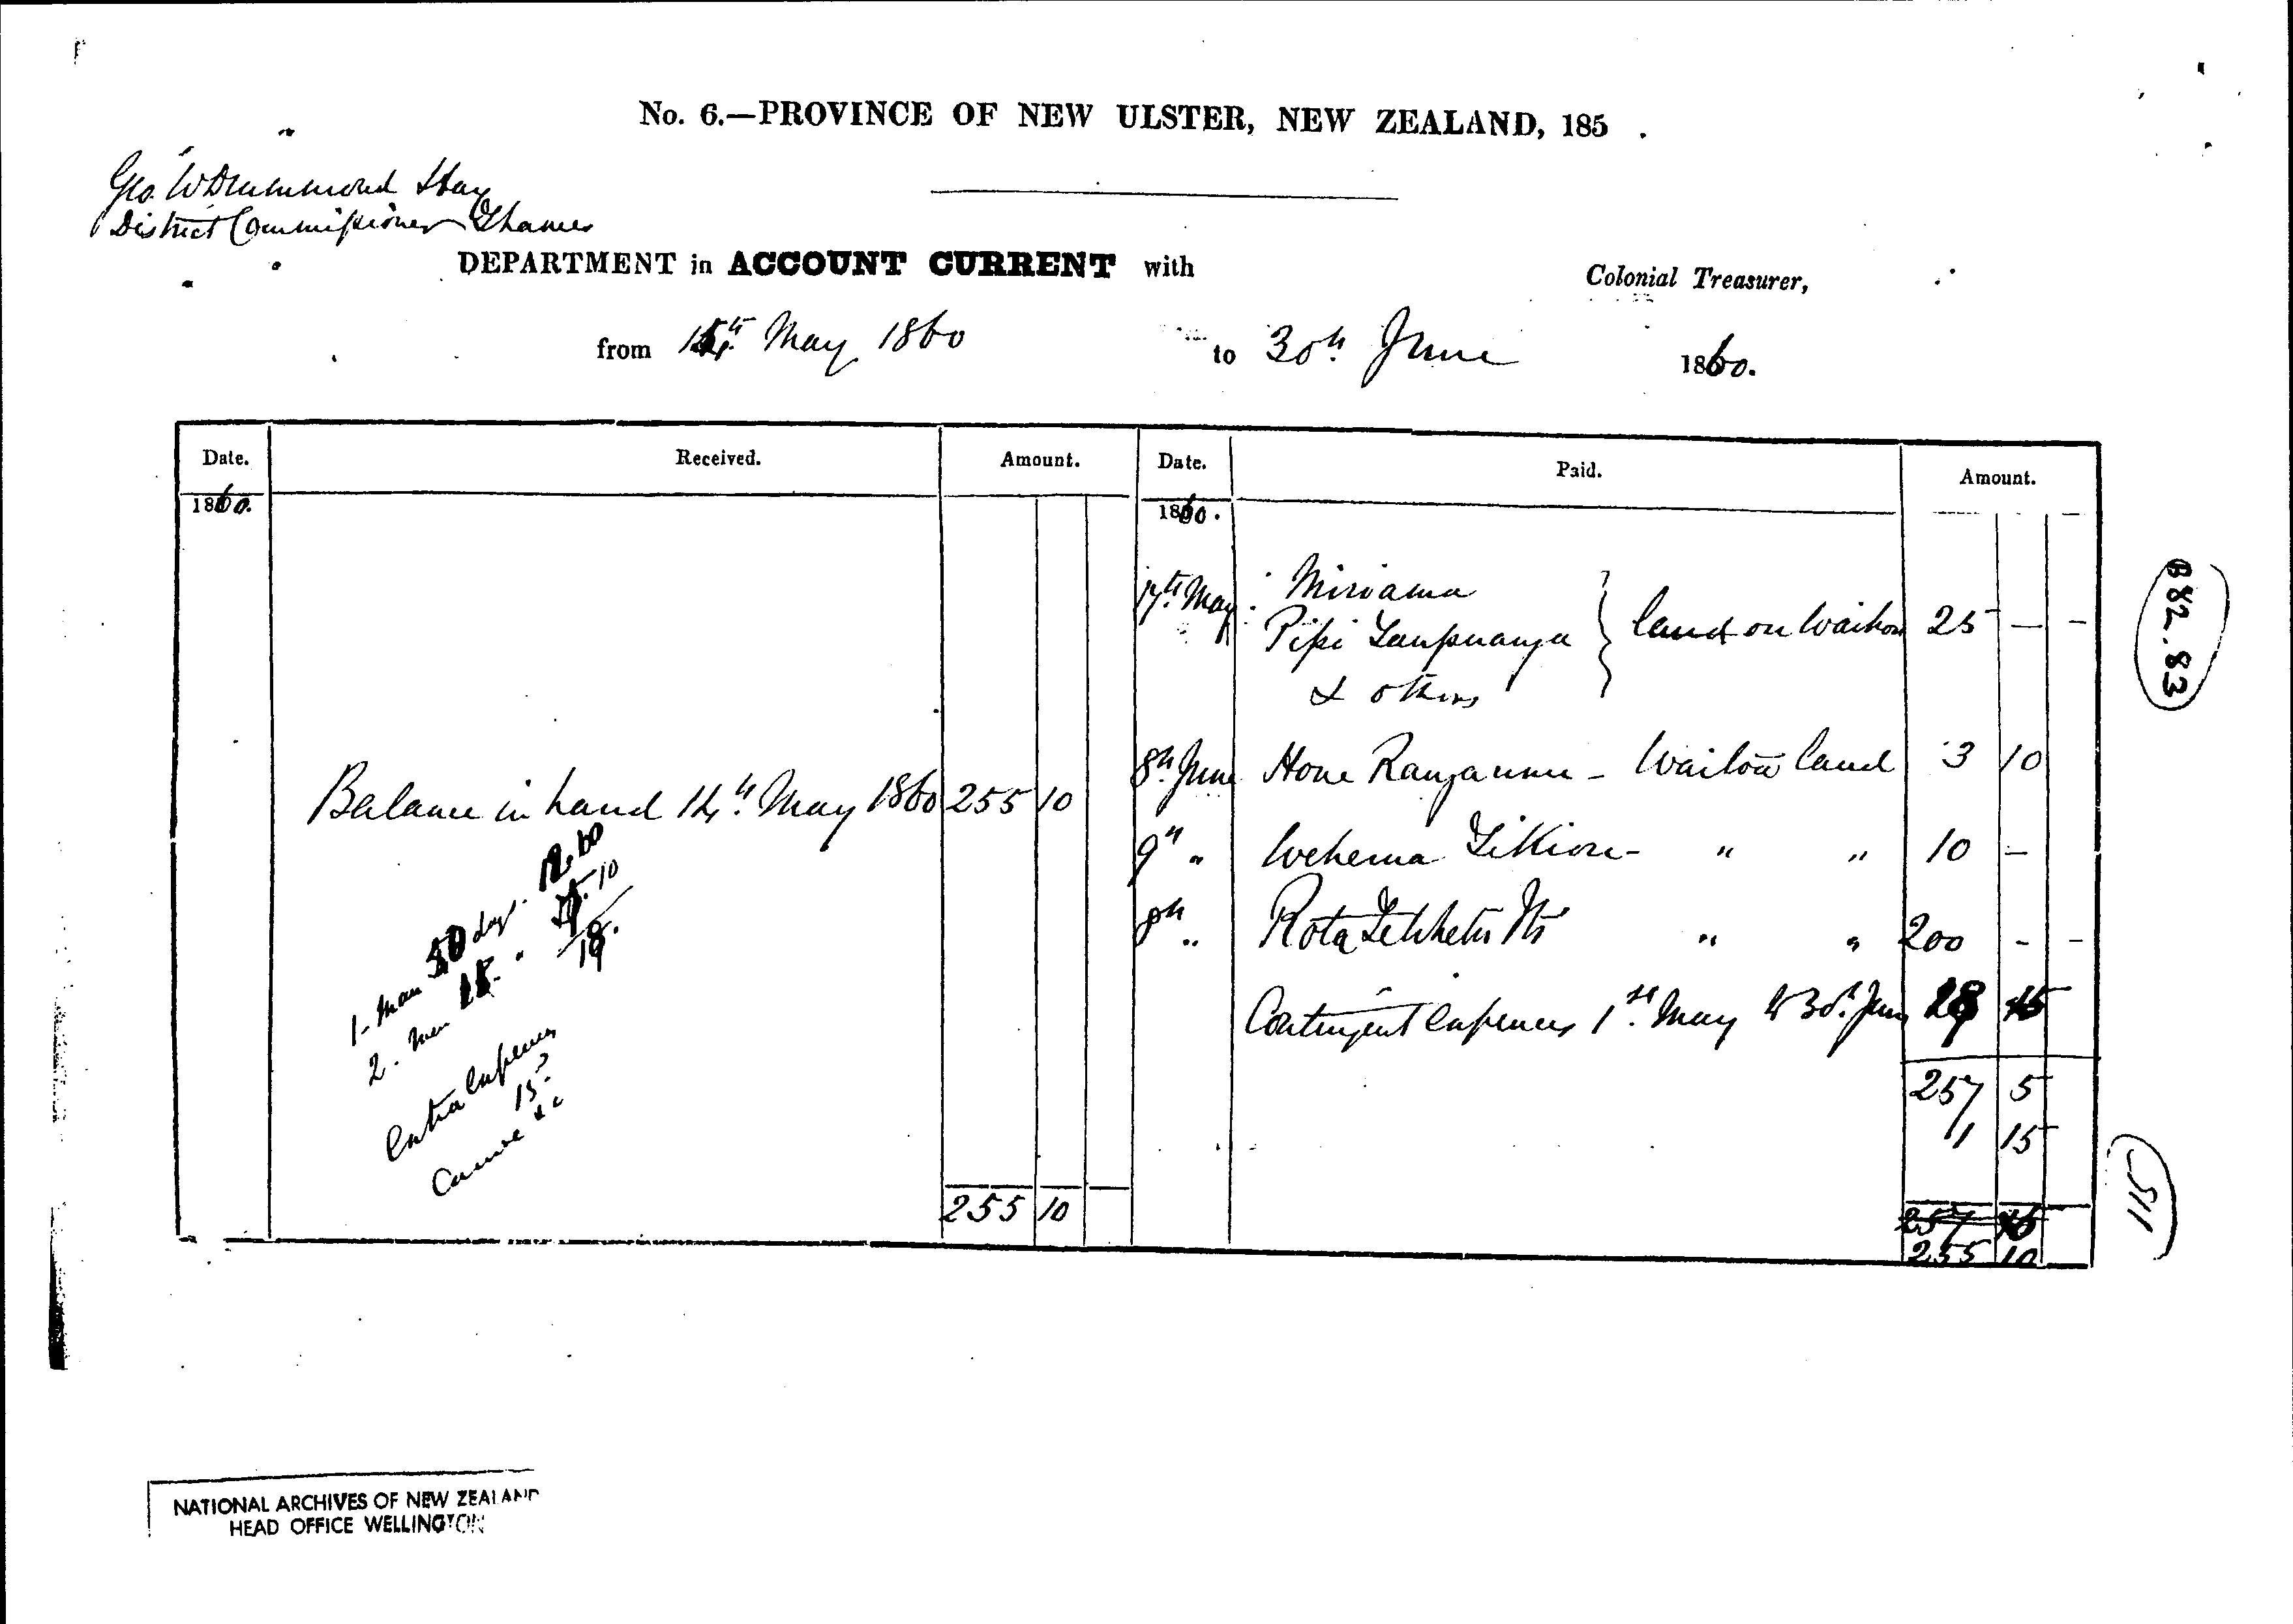 No. 6.—PROVINCE OF NEW ULSTER, NEW ZEALAND, 185 .
Geo. W Drummond Hay
District Commissioner Thames
DEPARTMENT in ACCOUNT CURRENT with Colonial Treasurer,
from 14th May 1860 to 30th June 1860.
Date. Received. Amount. Date. Paid. Amount.
1860. 1860.
17th May Miriama
Pipi land on Waihou 25 — -
& others
8th June Hone - Waitoa land 3 10
Balance in hand 14th May 1860 255 10
9th " Wehema - " " 10 —
8th " Rota " " 200 - -
Contingent Expenses 1st May to 30th June 18 15
1 - Man 50 days.
2. Men "
10
18.
Extra Expenses
15
Canoe &c
257 5
1 15
255 10
257
255 10
B82.83
511
NATIONAL ARCHIVES OF NEW ZEALAND
HEAD OFFICE WELLINGTON